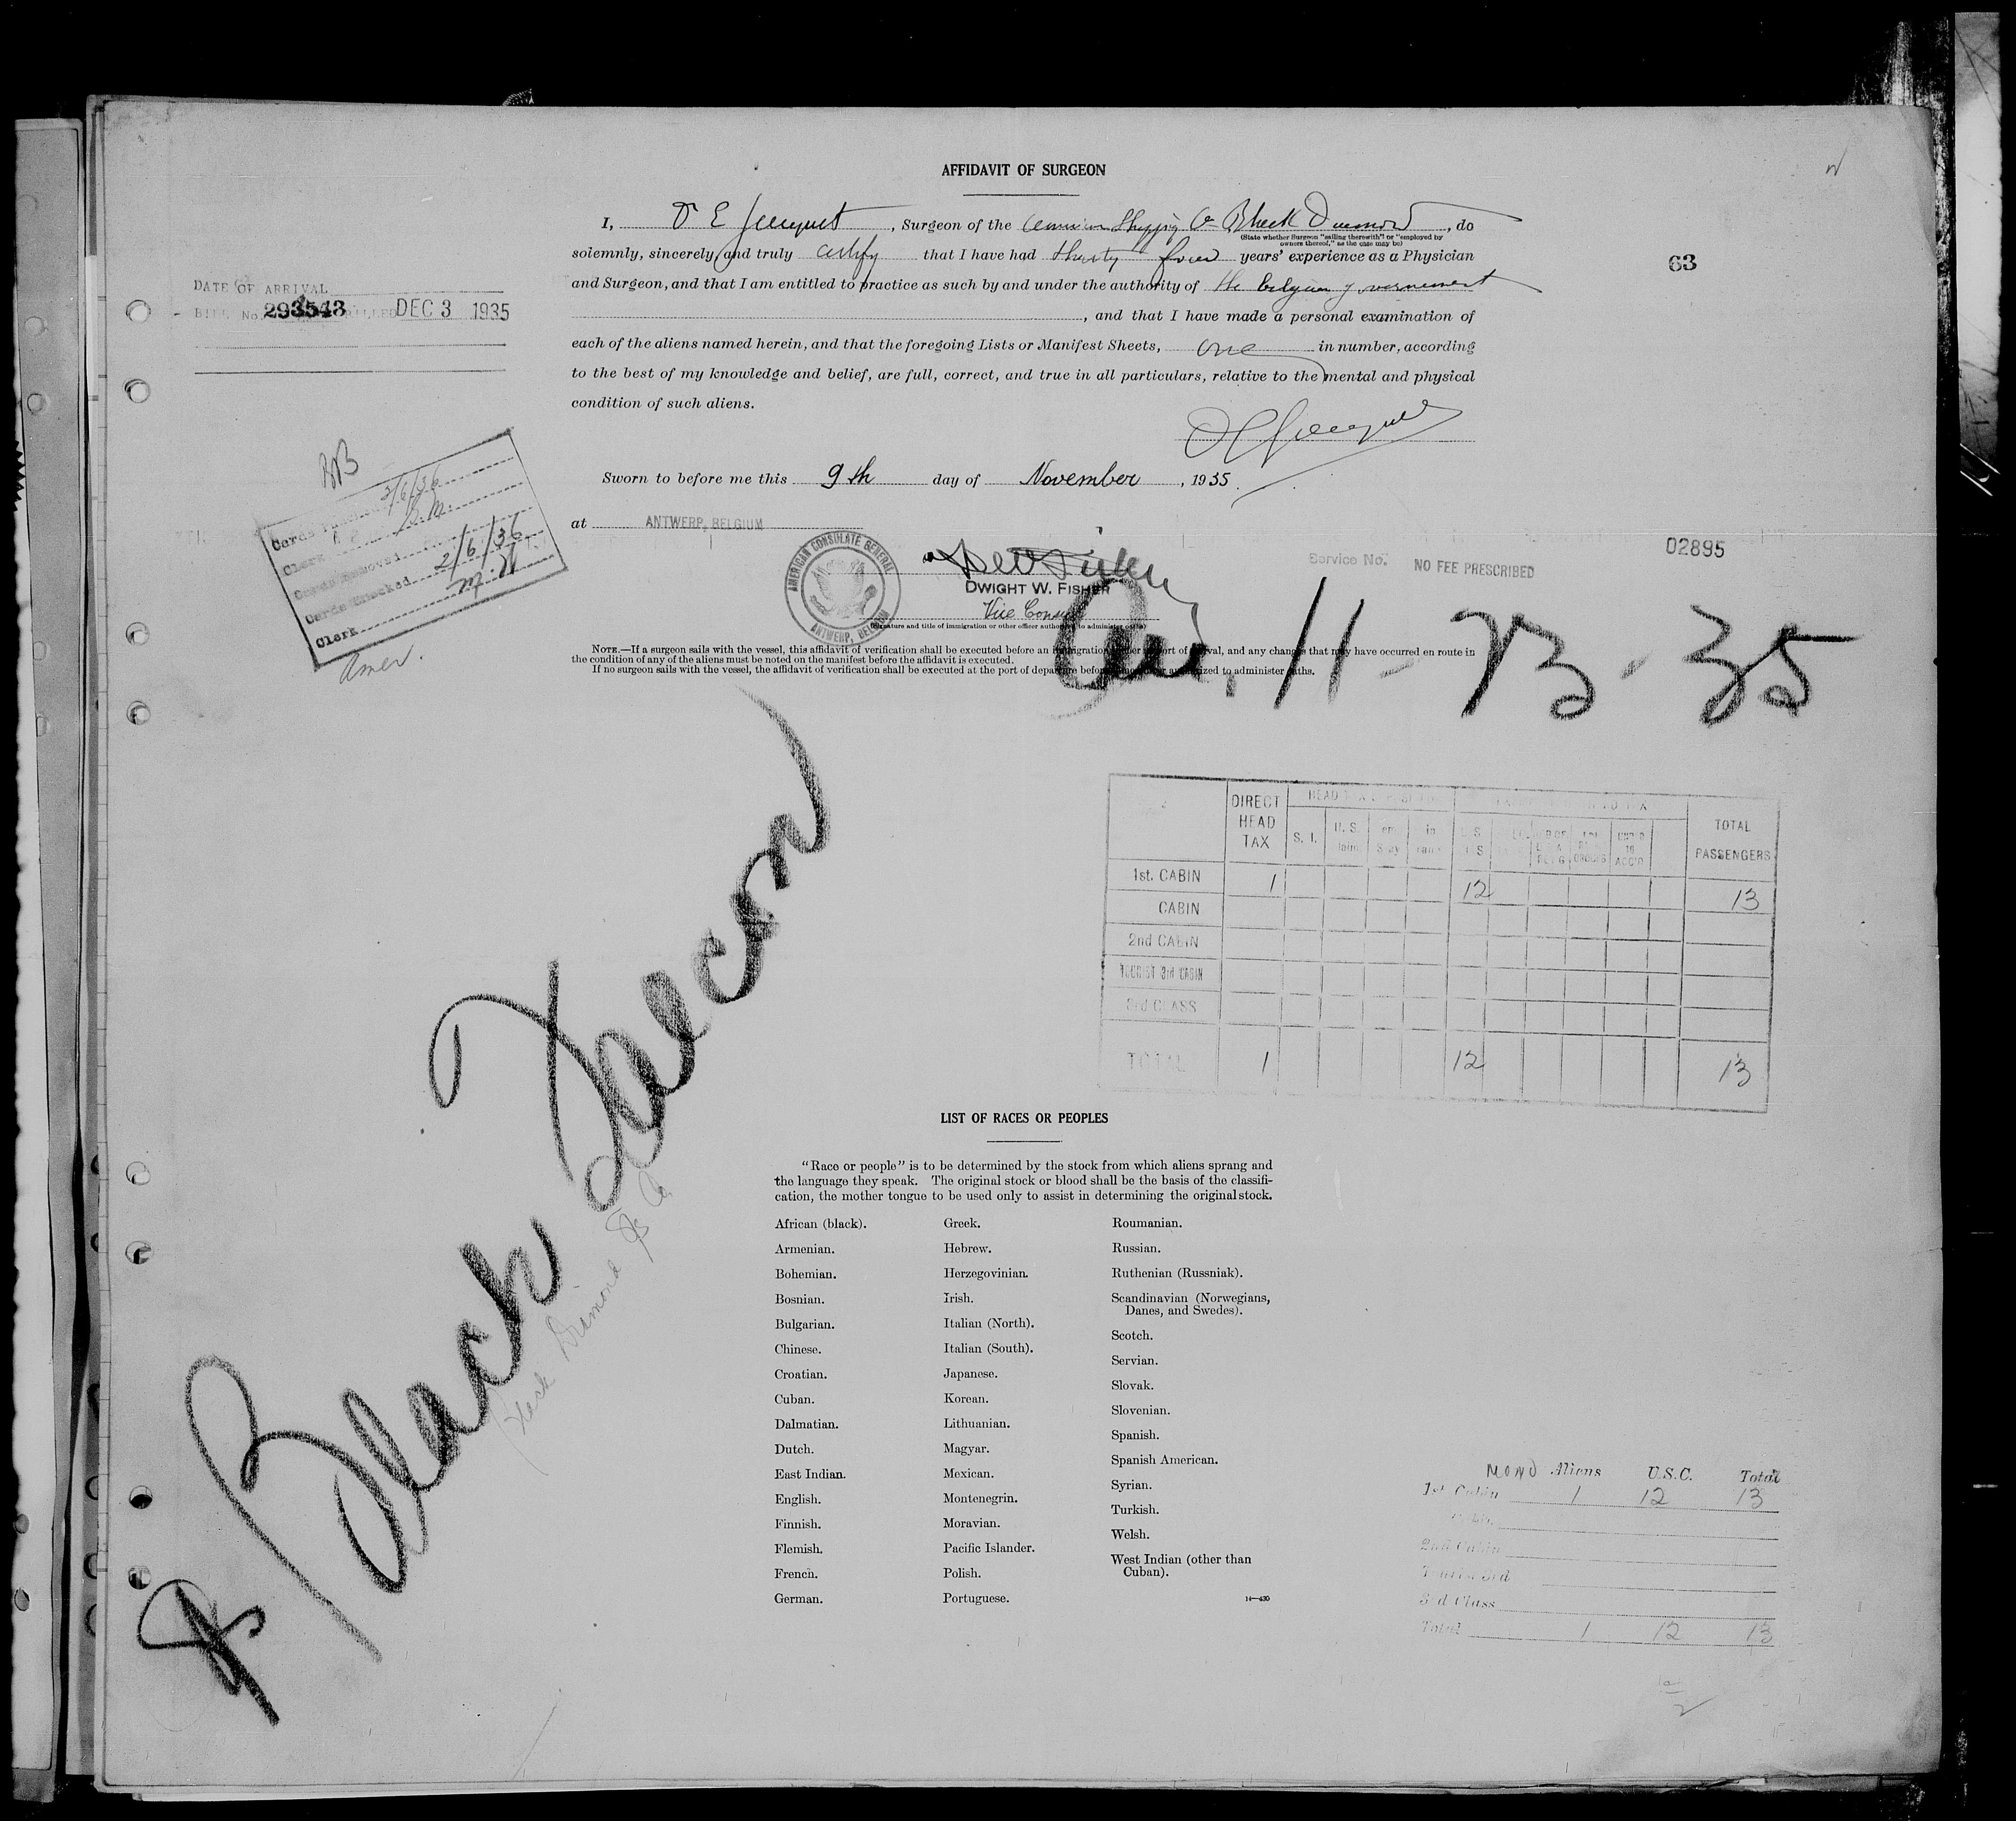 AFFIDAVIT OF SURGEON
I, Dr E Jacquet, Surgeon of the American Shipping Co Black Diamond, do
(State whether Surgeon "sailing therewith" or "employed by
owners thereof," as the case may be)
solemnly, sincerely, and truly certify that I have had thirty four years' experience as a Physician
and Surgeon, and that I am entitled to practice as such by and under the authority of the belgian government
, and that I have made a personal examination of
each of the aliens named herein, and that the foregoing Lists or Manifest Sheets, one in number, according
to the best of my knowledge and belief, are full, correct, and true in all particulars, relative to the mental and physical
condition of such aliens.
63
DATE OF ARRIVAL
BILL No. 293543 BILLED DEC 3 1935
Sworn to before me this 9th day of November, 1935.
at ANTWERP, BELGIUM
AMERICAN CONSULATE GENERAL
ANTWERP, BELGIUM
DWIGHT W. FISHER
Vice Consul
(Signature and title of immigration or other officer authorized to administer oaths)
Service No. NO FEE PRESCRIBED
02895
Cards 2/6/36
Clerk
Cards Removed
Cards Checked 2/6/36
Clerk M.H
Amer.
NOTE.—If a surgeon sails with the vessel, this affidavit of verification shall be executed before an immigration officer at port of arrival, and any changes that may have occurred en route in
the condition of any of the aliens must be noted on the manifest before the affidavit is executed.
If no surgeon sails with the vessel, the affidavit of verification shall be executed at the port of departure before an officer authorized to administer oaths.
Arr. 11-23-35
SS Black Falcon
Black Diamond SS Co
DIRECT HEAD TAX
S. I.
U. S.
TOTAL PASSENGERS
1st. CABIN 1 12 13
CABIN
2nd CABIN
TOURIST 3rd CABIN
3rd CLASS
TOTAL 1 12 13
LIST OF RACES OR PEOPLES
"Race or people" is to be determined by the stock from which aliens sprang and
the language they speak. The original stock or blood shall be the basis of the classifi-
cation, the mother tongue to be used only to assist in determining the original stock.
African (black).
Armenian.
Bohemian.
Bosnian.
Bulgarian.
Chinese.
Croatian.
Cuban.
Dalmatian.
Dutch.
East Indian.
English.
Finnish.
Flemish.
French.
German.
Greek.
Hebrew.
Herzegovinian.
Irish.
Italian (North).
Italian (South).
Japanese.
Korean.
Lithuanian.
Magyar.
Mexican.
Montenegrin.
Moravian.
Pacific Islander.
Polish.
Portuguese.
Roumanian.
Russian.
Ruthenian (Russniak).
Scandinavian (Norwegians,
Danes, and Swedes).
Scotch.
Servian.
Slovak.
Slovenian.
Spanish.
Spanish American.
Syrian.
Turkish.
Welsh.
West Indian (other than
Cuban).
14—430
Aliens U.S.C. Total
1st Cabin 1 12 13
Cabin
2nd Cabin
Tourist 3rd
3rd Class
Total 1 12 13